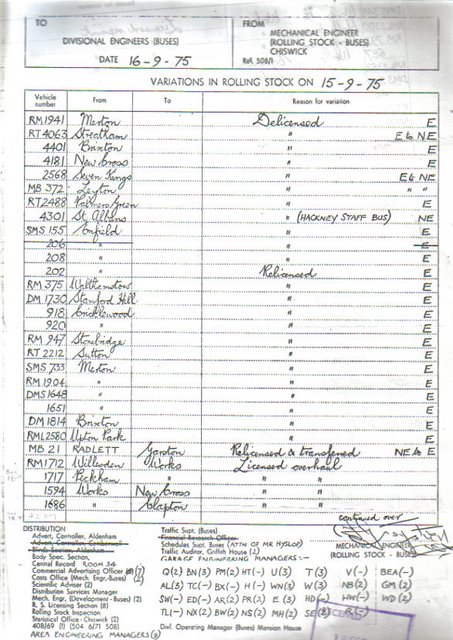 TO
DIVISIONAL ENGINEERS (BUSES)
DATE 16-9-75
FROM
MECHANICAL ENGINEER
(ROLLING STOCK - BUSES)
CHISWICK
Ref. 508/1
VARIATIONS IN ROLLING STOCK ON 15-9-75
Vehicle number From To Reason for variation
RM1941 Merton Delicensed E
RT4063 Streatham " E to NE
4401 Brixton " E
4181 New Cross " E
2568 Seven Kings " E to NE
MB 372 Leyton " " "
RT2488 Palmers Green " E
4301 St. Albans " (HACKNEY STAFF BUS) NE
SMS 155 Enfield " E
206 " " E
208 " " E
202 " Relicensed E
RM 375 Walthamstow " E
DM 1730 Stamford Hill " E
918 Cricklewood " E
920 " " E
RM 947 Stonebridge " E
RT 2212 Sutton " E
SMS 733 Merton " E
RM 1904 " " E
DMS 1648 " " E
1651 " " E
DM 1814 Brixton " E
RML2580 Upton Park " E
MB 21 RADLETT Garston Relicensed & transferred NE to E
RM1712 Willesden Works Licensed overhaul
1717 Peckham " " "
1594 Works New Cross " "
1686 " Clapton " "
continued over
DISTRIBUTION
Advert. Controller, Aldenham
Advert. Controller, Camberwell
Blind Section, Aldenham
Body Spec. Section,
Central Record ROOM 34
Commercial Advertising Officer
Costs Office (Mech. Engr.-Buses) (2)
Scientific Adviser (2)
Distribution Services Manager
Mech. Engr. (Development - Buses) (2)
R. S. Licensing Section (8)
Rolling Stock Inspection
Statistical Office - Chiswick (2)
408/B/69 (R) (504 6/71 508)
AREA ENGINEERING MANAGERS (9)
Traffic Supt. (Buses)
Financial Research Officer
Schedules Supt. Buses (ATTN OF MR HYSLOP)
Traffic Auditor, Griffith House (2)
GARAGE ENGINEERING MANAGERS:-
MECHANICAL ENGINEER
(ROLLING STOCK - BUSES)
Q(2) BN(3) PM(2) HT(-) U(3) T(3) V(-) BEA(-)
AL(3) TC(-) BX(-) H(-) WN(3) W(3) NB(2) GM(2)
SW(-) ED(-) AR(2) PR(2) E(3) HD HW(-) WD(2)
TL(-) NX(2) BW(2) NS(2) MH(2) SE R(-)
Divl. Operating Manager (Buses) Mansion House